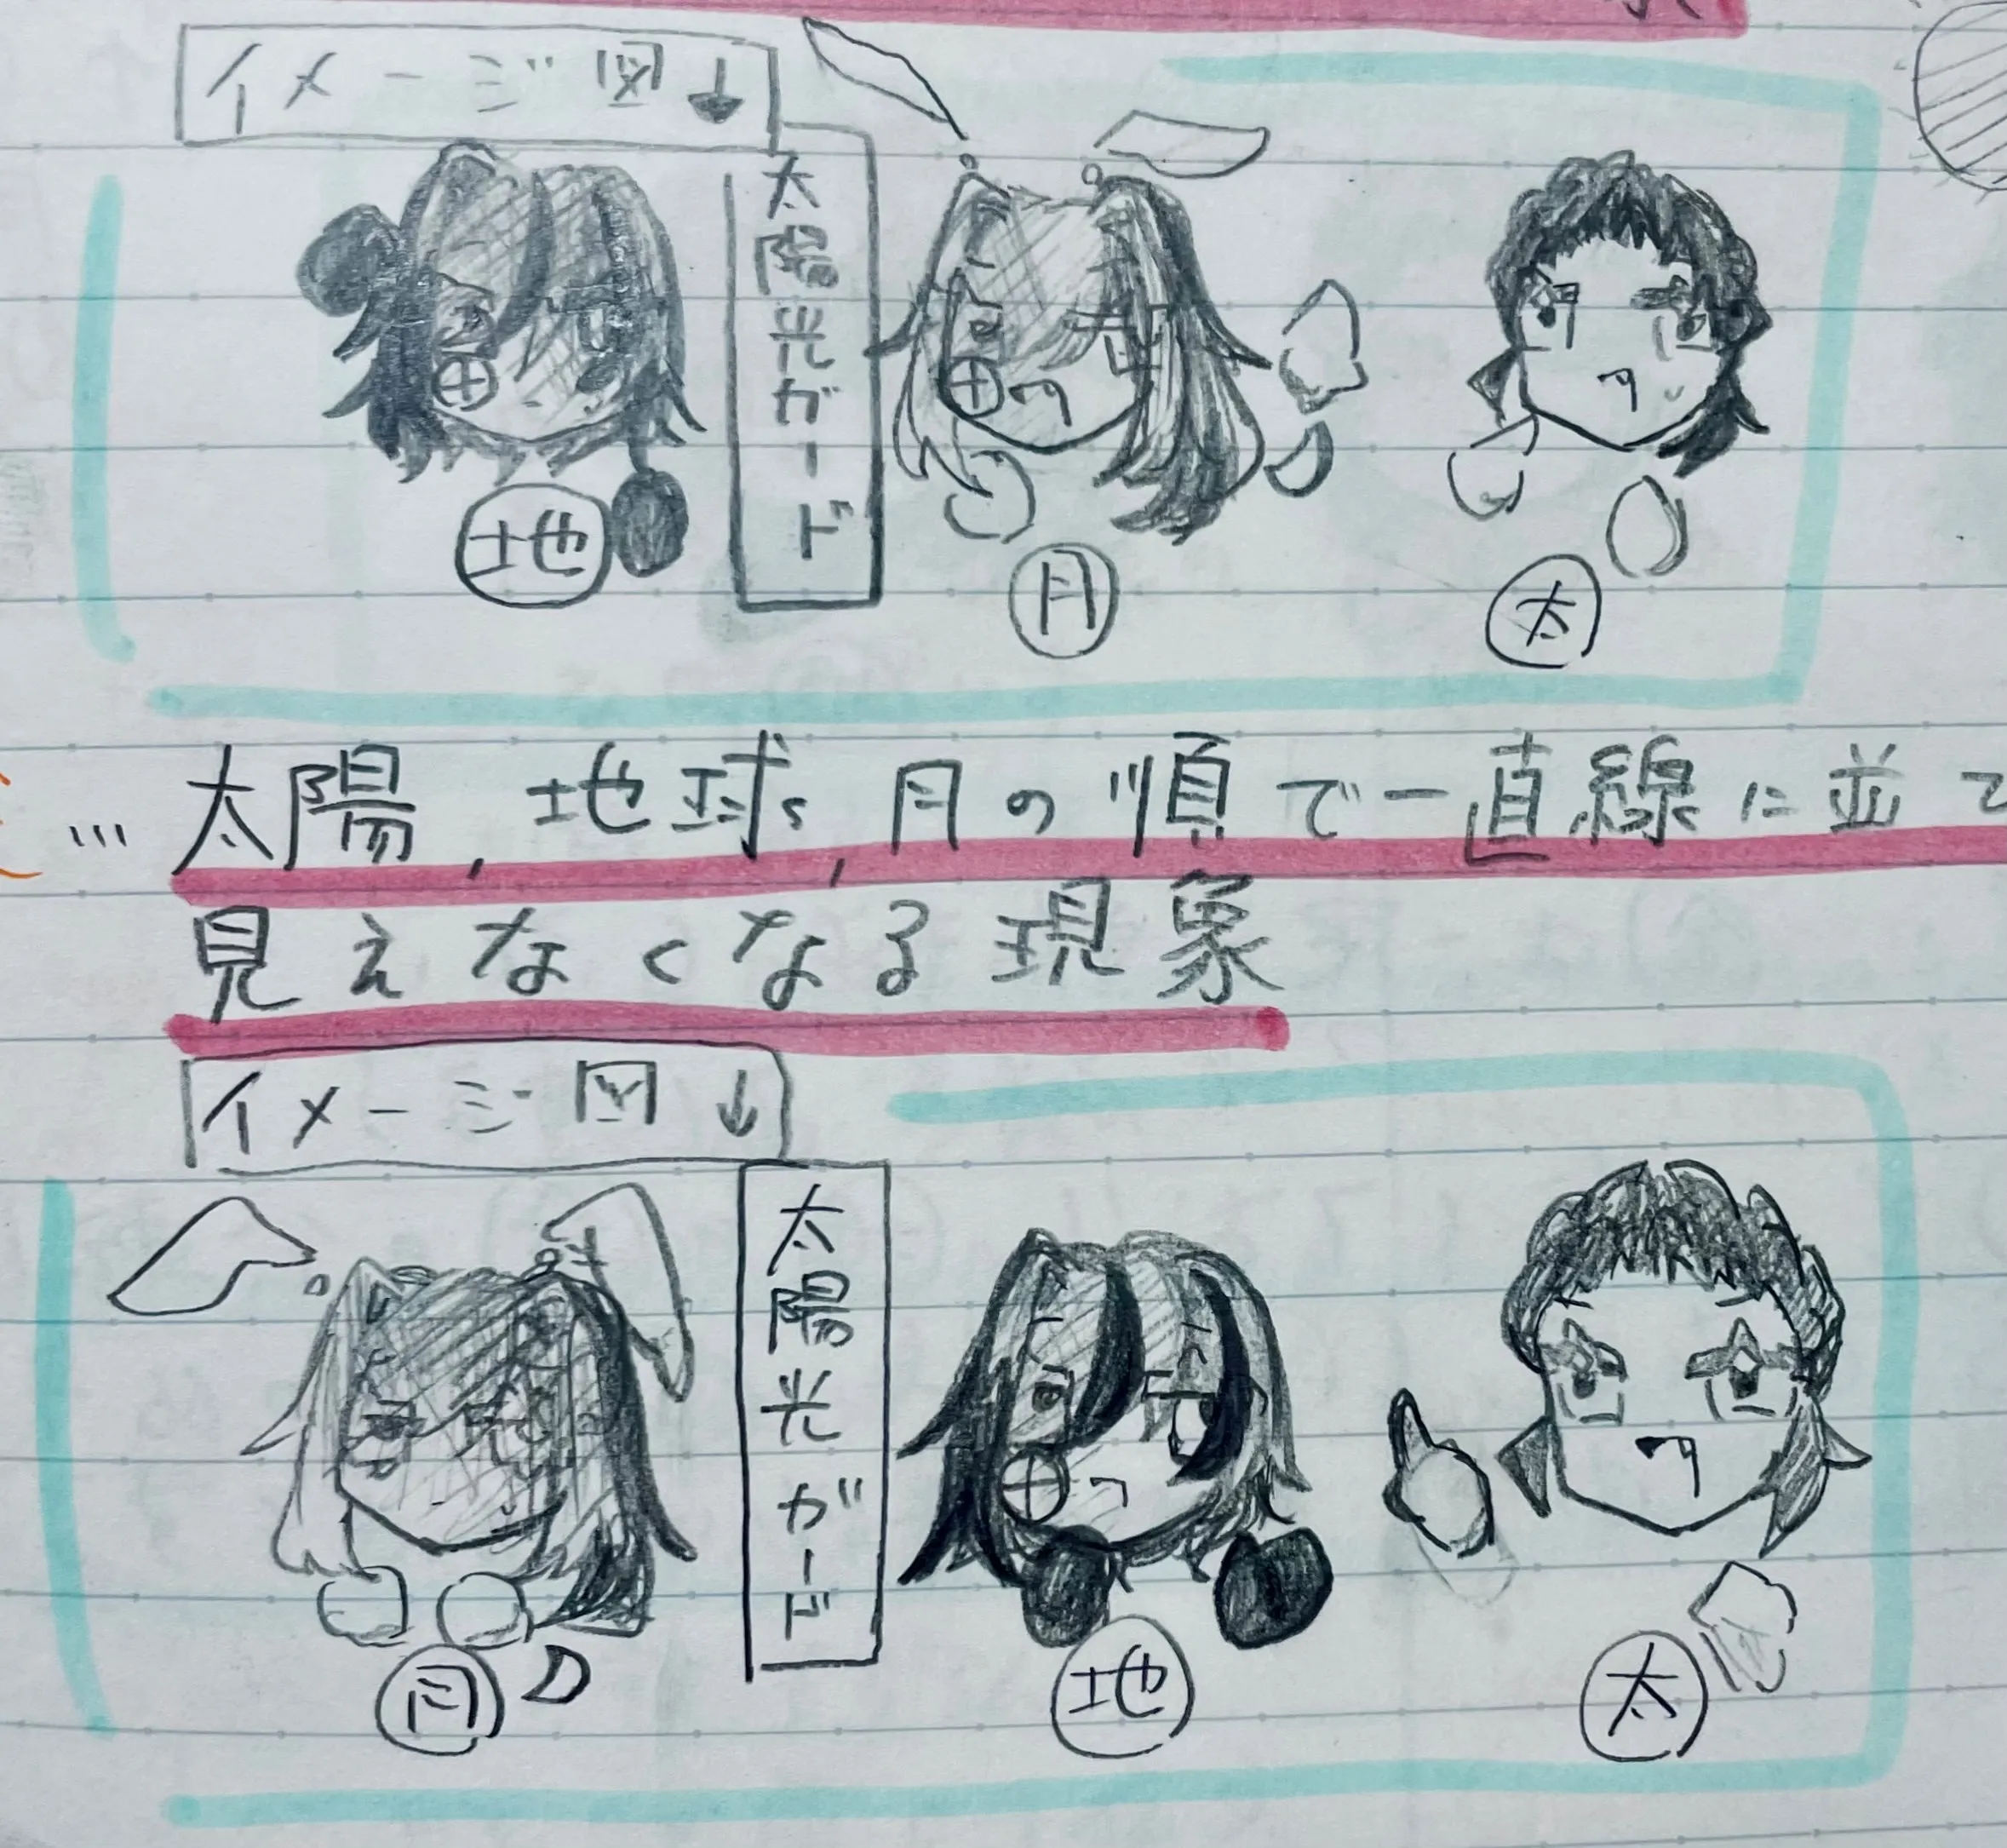 イメージ図↓
太陽光ガード
地
月
太
… 太陽,地球,月の順で一直線に並
見えなくなる現象
イメージ図↓
太陽光ガード
月
地
太